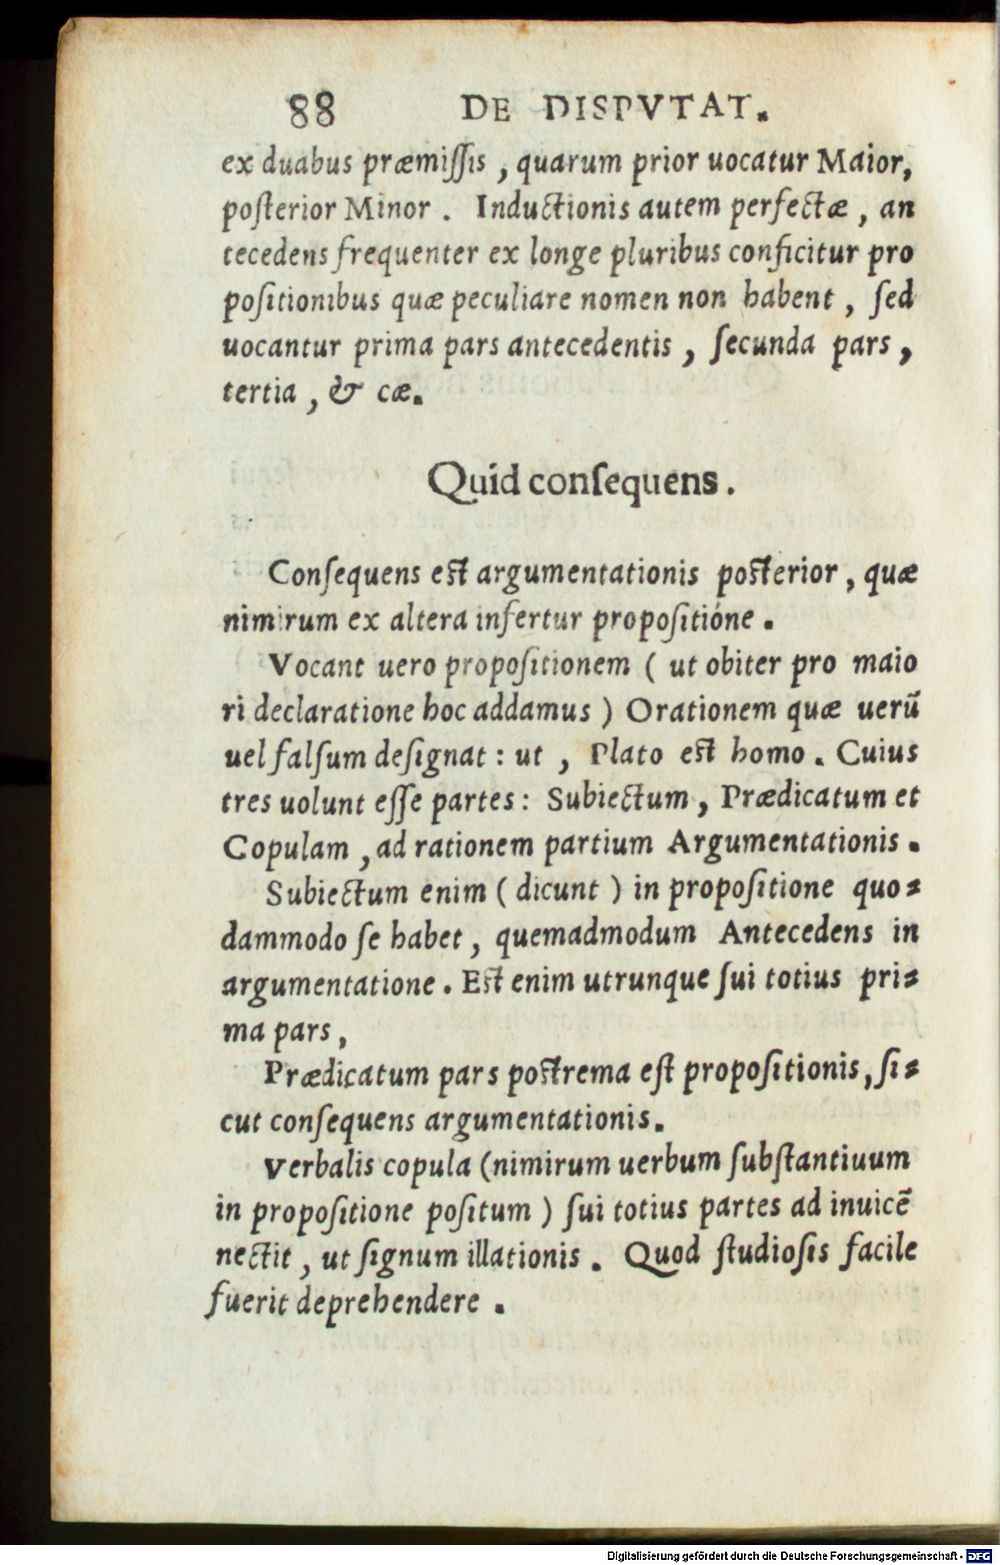 88 DE DISPVTAT.
ex duabus præmiſſis, quarum prior uocatur Maior,
poſterior Minor. Inductionis autem perfectæ, an
tecedens frequenter ex longe pluribus conficitur pro
poſitionibus quæ peculiare nomen non habent, ſed
uocantur prima pars antecedentis, ſecunda pars,
tertia, & cæ.
Quid conſequens.
Conſequens eſt argumentationis poſterior, quæ
nimirum ex altera infertur propoſitióne.
Vocant uero propoſitionem (ut obiter pro maio
ri declaratione hoc addamus) Orationem quæ uerũ
uel falſum deſignat: ut, Plato eſt homo. Cuius
tres uolunt eſſe partes: Subiectum, Prædicatum et
Copulam, ad rationem partium Argumentationis.
Subiectum enim (dicunt) in propoſitione quo⸗
dammodo ſe habet, quemadmodum Antecedens in
argumentatione. Eſt enim utrunque ſui totius pri⸗
ma pars,
Prædicatum pars poſtrema eſt propoſitionis, ſi⸗
cut conſequens argumentationis.
Verbalis copula (nimirum uerbum ſubſtantiuum
in propoſitione poſitum) ſui totius partes ad inuicẽ
nectit, ut ſignum illationis. Quod ſtudioſis facile
fuerit deprehendere.
Digitalisierung gefördert durch die Deutsche Forschungsgemeinschaft - DFG